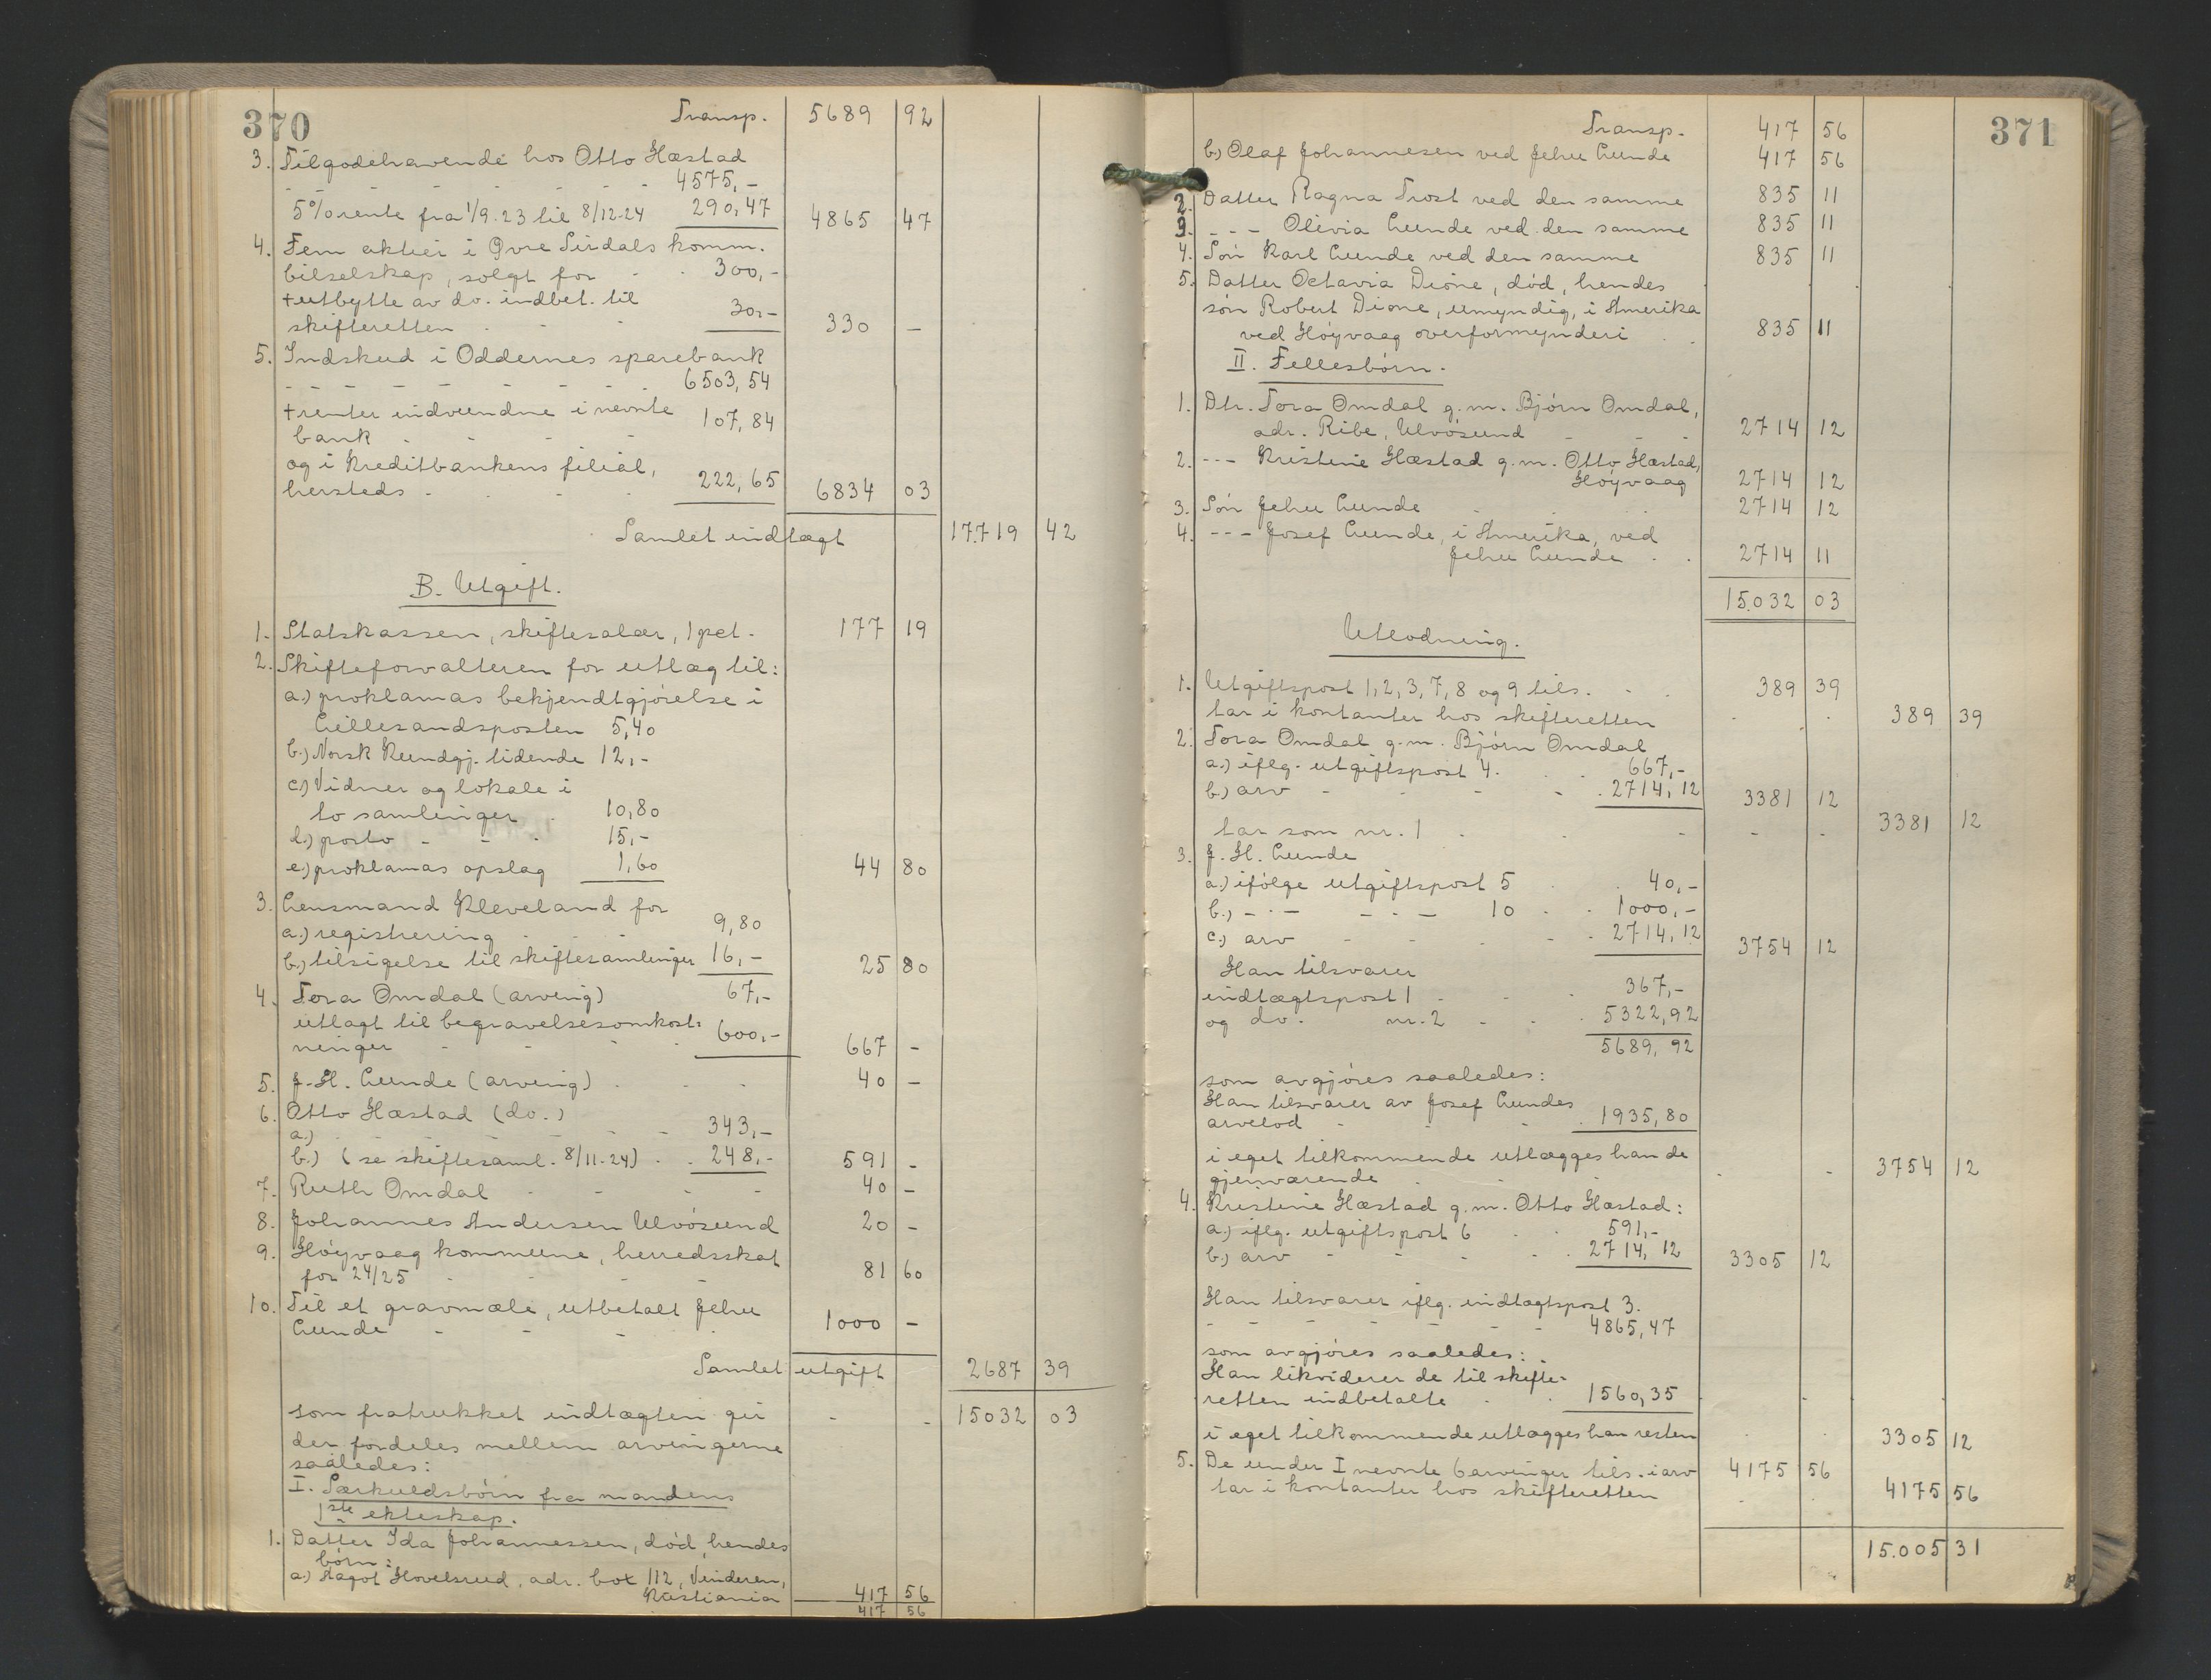 370
Transp. 5689 92
3. Tilgodehavende hos Otto Hæstad
- - - - - - - 4575,-
5% rente fra 1/9-23 til 8/12-24 290,47 4865 47
4. Fem aktier i Øvre Sirdals komm.
bilselskap, solgt for - - 300,-
+ utbytte av do. indbet. til
skifteretten - - - 30,- 330 -
5. Indskud i Oddernes sparebank
- - - - - - - 6503,54
+ renter indvundne i nevnte
bank - - - - 107,84
og i Kreditbankens filial,
hersteds - - - - 222,65 6834 03
Samlet indtægt 17.719 42
B. Utgift.
1. Statskassen, skiftesalær, 1 pct. 177 19
2. Skifteforvalteren for utlæg til:
a.) proklamas bekjendtgjørelse i
Lillesandsposten 5,40
b.) Norsk Kundgj. tidende 12,-
c.) Vidner og lokale i
to samlinger - 10,80
d.) porto - - - 15,-
e.) proklamas opslag 1,60 44 80
3. Lensmand Kleveland for
a.) registrering - - - 9,80
b.) tilsigelse til skiftesamlinger 16,- 25 80
4. Tora Omdal (arving) 67,-
utlagt til begravelsesomkost-
ninger - - - - 600,- 667 -
5. J. H. Lunde (arving) - - - 40 -
6. Otto Hæstad (do.)
a.) - - - - - - 343,-
b.) (se skiftesaml. 8/11-24) - - 248,- 591 -
7. Ruth Omdal - - - - 40 -
8. Johannes Andersen Ulvøsund 20 -
9. Høyvaag kommune, herredsskat
for 24/25 - - - - 81 60
10. Til et gravmæle, utbetalt Jehu
Lunde - - - - 1000 -
Samlet utgift 2687 39
som fratrukket indtægten gir - - 15032 03
der fordeles mellem arvingerne
saaledes:
I. Særkuldsbørn fra mandens
1ste ekteskap.
1. Datter Ida Johannessen, død, hendes
børn:
a.) Aagot Hovelsrud, adr. box 112, Vinderen,
Kristiania 417 56
417 56
371
Transp. 417 56
b.) Olaf Johannesen ved Jehu Lunde 417 56
2. Datter Ragna Trost ved den samme 835 11
3. - - - Olivia Lunde ved den samme 835 11
4. Søn Karl Lunde ved den samme 835 11
5. Datter Octavia Dione, død, hendes
søn Robert Dione, umyndig, i Amerika
ved Høyvaag overformynderi - - 835 11
II. Fellesbørn.
1. Dtr. Tora Omdal g.m. Bjørn Omdal,
adr. Ribe, Ulvøsund - - - 2714 12
2. - - - Kristine Hæstad g.m. Otto Hæstad,
Høyvaag 2714 12
3. Søn Jehu Lunde - - - 2714 12
4. - - - Josef Lunde, i Amerika, ved
Jehu Lunde - - 2714 11
15.032 03
Utlodning.
1. Utgiftspost 1, 2, 3, 7, 8 og 9 tils. - - 389 39
tar i kontanter hos skifteretten - - 389 39
2. Tora Omdal g.m. Bjørn Omdal
a.) iflg. utgiftspost 4. - - 667,-
b.) arv - - - - 2714,12 3381 12
tar som nr. 1 - - - - - 3381 12
3. J. H. Lunde
a.) ifølge utgiftspost 5 - - 40,-
b.) - · - - · - 10 - - 1000,-
c.) arv - - - - - 2714,12 3754 12
Han tilsvarer
indtægtspost 1 - - - 367,-
og do. nr. 2 - - - 5322,92
5689,92
som avgjøres saaledes:
Han tilsvarer av Josef Lundes
arvelod - - - - 1935,80
i eget tilkommende utlægges han de
gjenværende - - - 3754 12
4. Kristine Hæstad g.m. Otto Hæstad:
a.) iflg. utgiftspost 6 - - 591,-
b.) arv - - - - 2714,12 3305 12
Han tilsvarer iflg. indtægtspost 3.
- - - - - - - 4865,47
som avgjøres saaledes:
Han likviderer de til skifte-
retten indbetalte - - 1560,35
i eget tilkommende utlægges han resten - - 3305 12
5. De under I nevnte 6 arvinger tils. i arv 4175 56
tar i kontanter hos skifteretten - - 4175 56
15.005 31